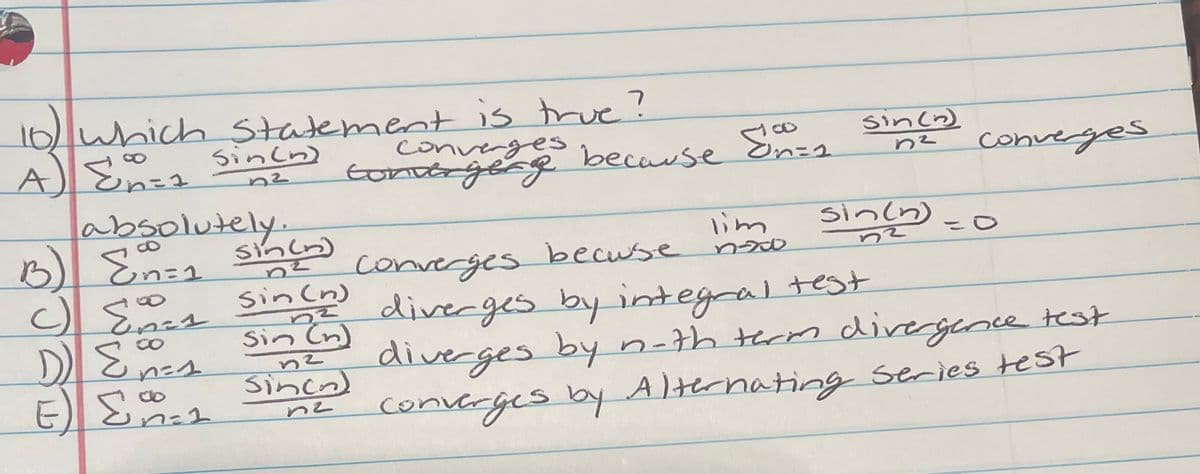 10) which statement is true?
A) Σ∞n=1 sin(n)/n2 converges because Σ∞n=1 sin(n)/n2 converges
absolutely.
B) Σ∞n=1 sin(n)/n2 converges becuse lim n→∞ sin(n)/n2 = 0
C) Σ∞n=1 sin(n)/n2 diverges by integral test
D) Σ∞n=1 sin(n)/n2 diverges by n-th term divergence test
E) Σ∞n=1 sin(n)/n2 converges by Alternating series test